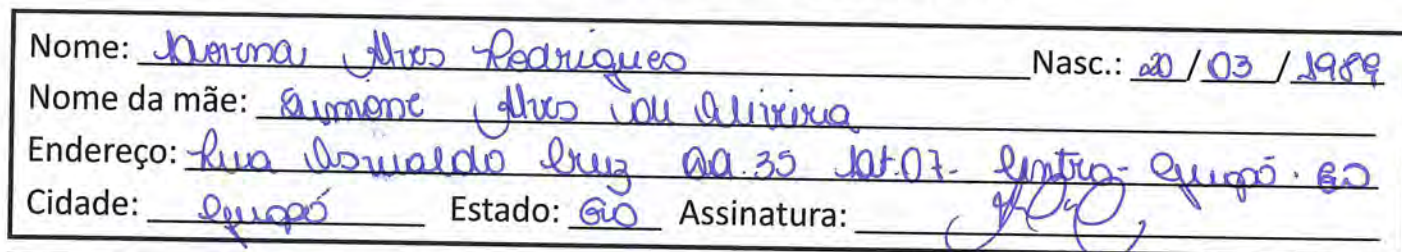 Nome: Alves Rodrigues Nasc.: 20/03/1989
Nome da mãe: Simone Alves de Oliveira
Endereço: Rua Oswaldo Cruz QD.35 Lt.07- Centro- GO
Cidade: Estado: GO Assinatura: